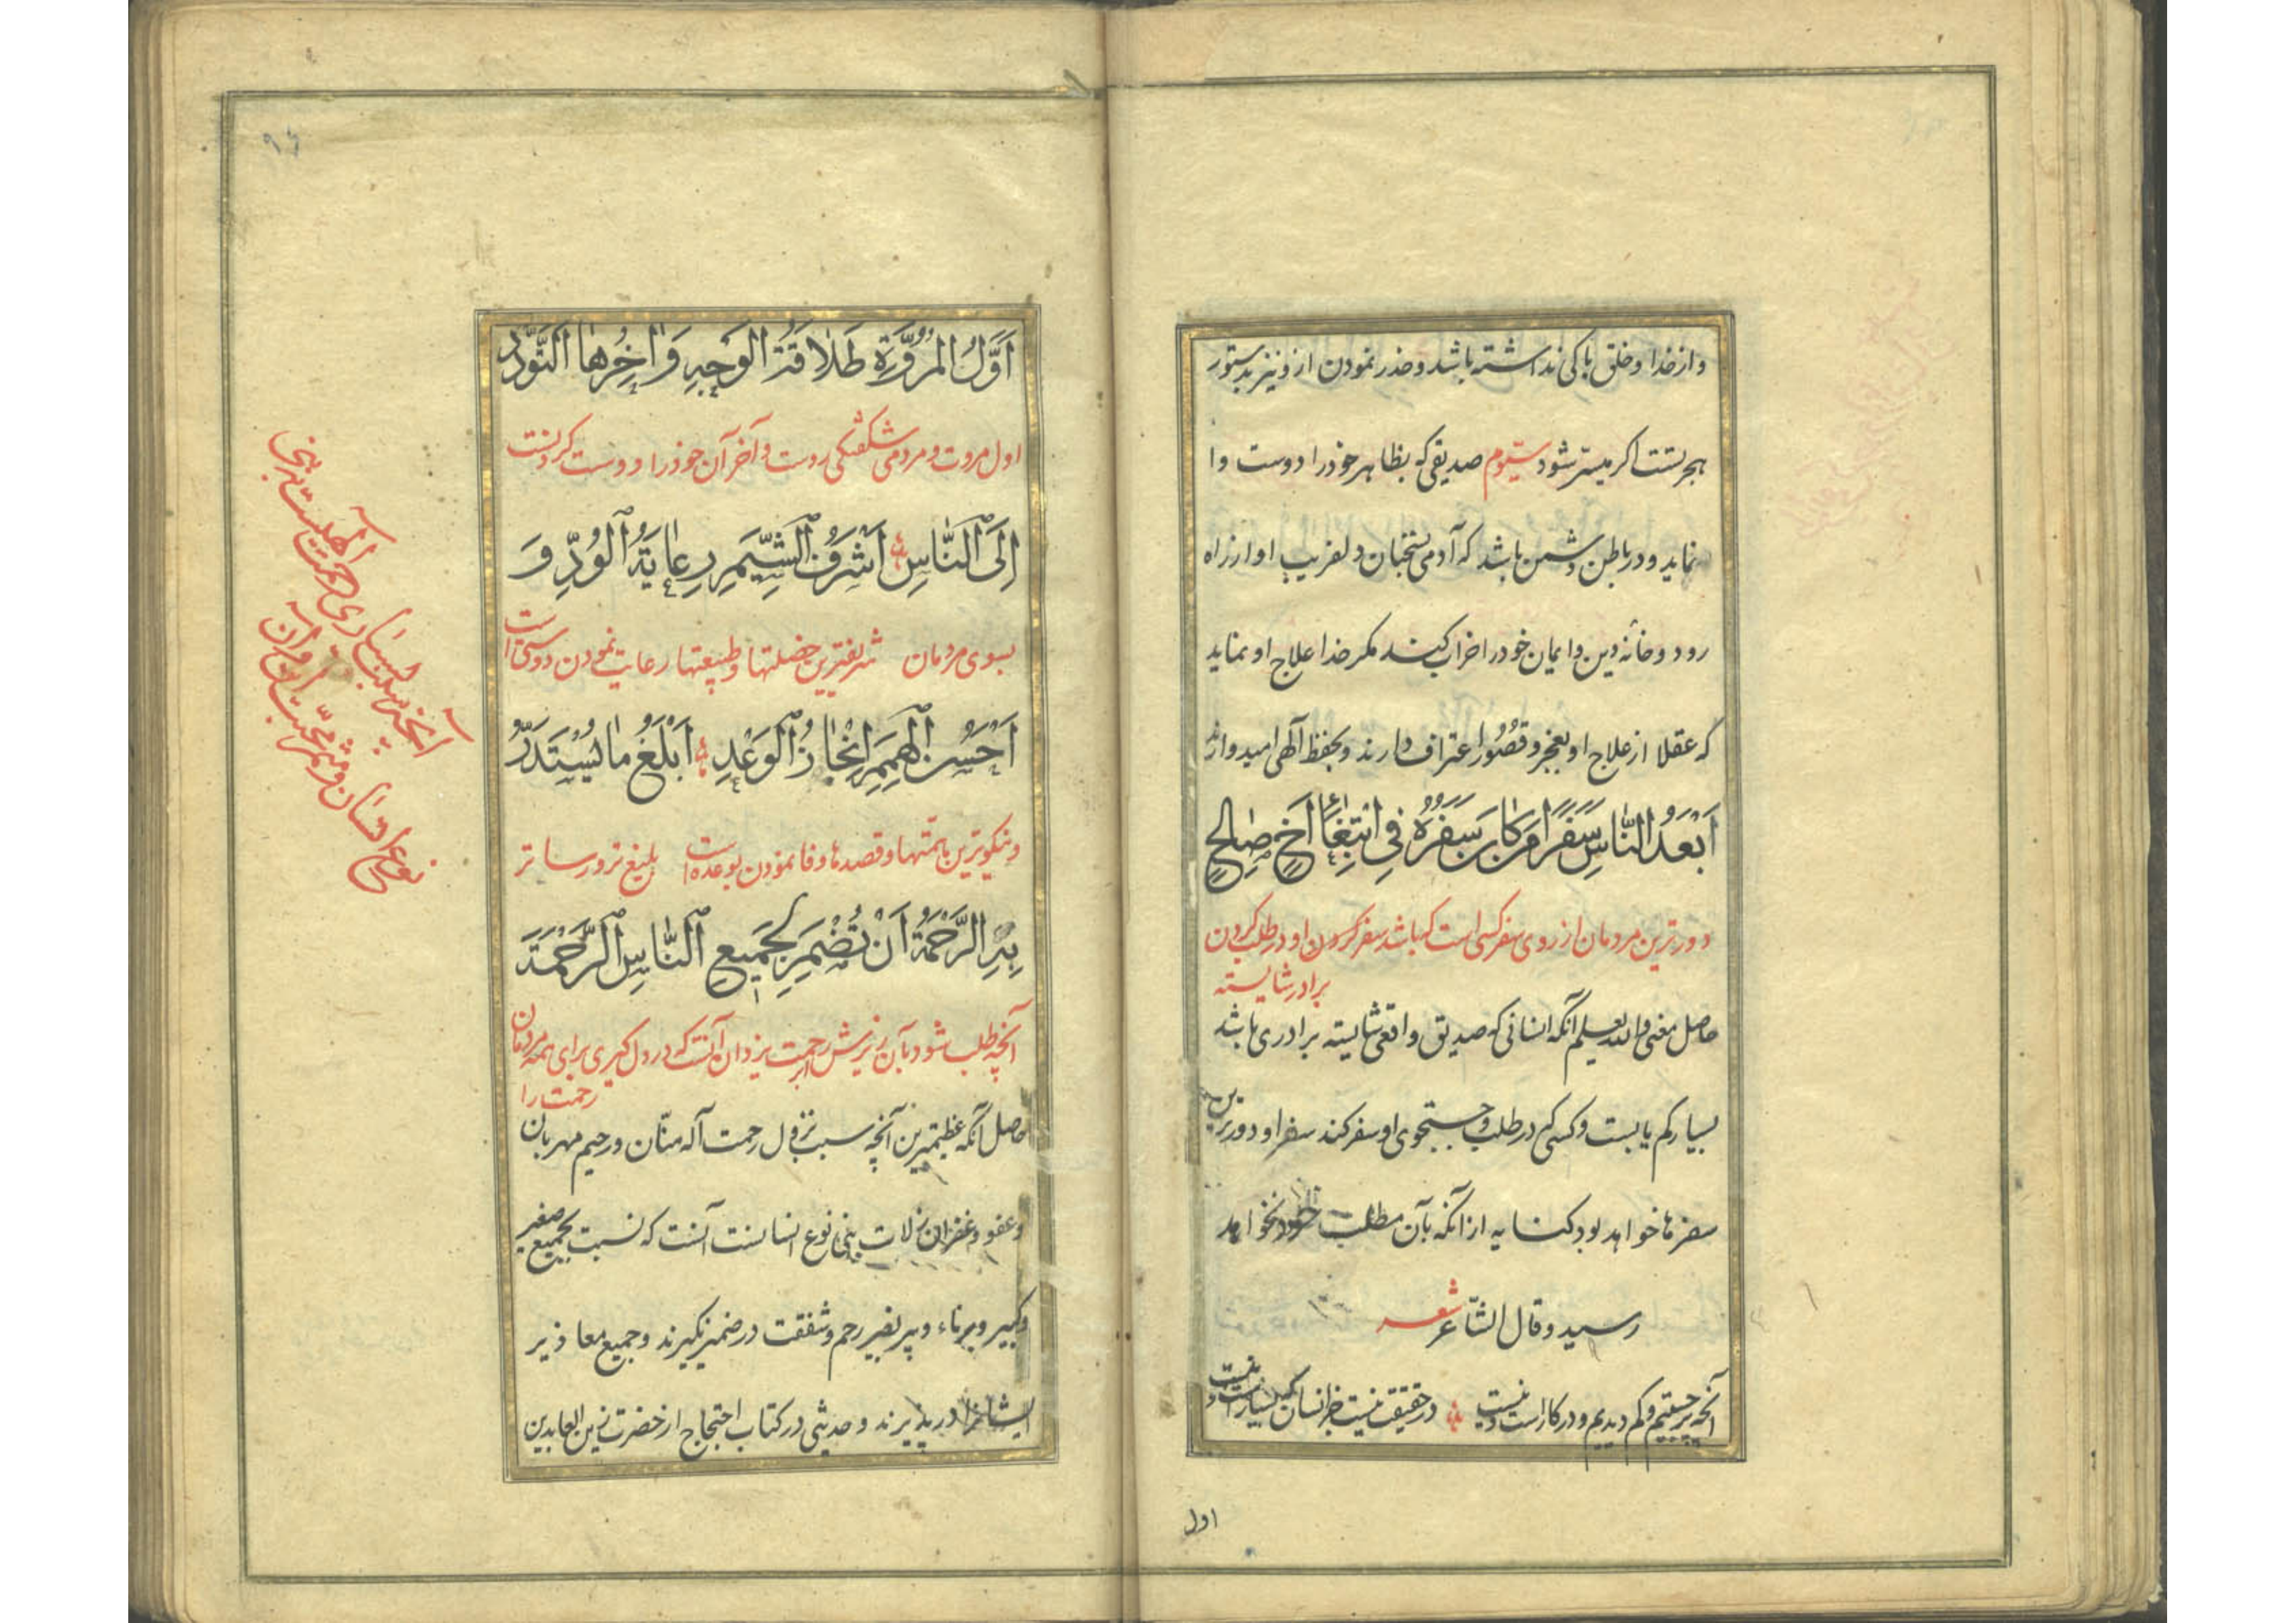 و از خدا و خلق باکی نداشته باشد و حذر نمودن از و نیز بدستور
هجرتست اکر میسر شود سیّوم صدیقی که بظاهر خود را دوست وا
نماید و در باطن دشمن باشد که آدمی بسخنان دلفریب او از راه
رود و خانه دین و ایمان خود را خراب کند مکر خدا علاج او نماید
که عقلا از علاج او بعجز و قصور اعتراف دارند و بحفظ آلهی امیدوارند
اَبْعَدُ النّٰاسِ سَفَرًا مَنْ کٰانَ سَفَرُهُ فِی ابْتِغٰاءِ اَخٍ صٰالِحٍ
دورترین مردمان از روی سفر کسی است که باشد سفر کردن او در طلب کردن
برادر شایسته
حاصل معنی و الله یعلم آنکه انسانی که صدیق واقعی شایسته برادری باشد
بسیار کم یابست و کسی که در طلب و جستجوی او سفر کند سفر او دورترین
سفرها خواهد بود کنایه از آنکه بآن مطلب خود نخواهد
رسید و قال الشّاعر شعر
آنچه پر جستیم و کم دیدیم و در کار است و نیست در حقیقت نیست جز انسان که بسیار است و نیست
اول
اَوَّلُ الْمُرُوَّةِ طَلٰاقَةُ الْوَجْهِ وَ اٰخِرُهَا التَّوَدُّدُ
اول مروت و مردمی شکفتکی روست و آخر آن خود را دوست کردنست
اِلَی النّٰاسِ اَشْرَفُ الشِّیَمِ رِعٰایَةُ الْوُدِّ وَ
بسوی مردمان شریفترین خصلتها و طبیعتها رعایت نمودن دوستی است
اَحْسَنُ الْهِمَمِ اِنْجٰازُ الْوَعْدِ اَبْلَغُ مٰا یُسْتَدَرُّ
و نیکوترین همّتها و قصدها وفا نمودن بوعده است بلیغ تر و رساتر
بِهِ الرَّحْمَةُ اَنْ تُضْمِرَ لِجَمیعِ النّٰاسِ الرَّحْمَةَ
آنچه طلب شود بآن ریزش ابر رحمت یزدان آنست که در دل کیری برای همه مردمان
رحمت را
حاصل آنکه عظیمترین آنچه سبب نزول رحمت آله منّان و رحیم مهربان
و عفو و غفران زلات بنی نوع انسانست آنست که نسبت بجمیع صغیر
و کبیر و برناء و پیر بغیر رحم و شفقت در ضمیر نکیرند و جمیع معاذیر
ایشانرا در پذیرند و حدیثی در کتاب احتجاج از حضرت زین العابدین
آنچه سبب بسیاری رحمت آلهیست به بنی
نوع انسان و مثمر محبت